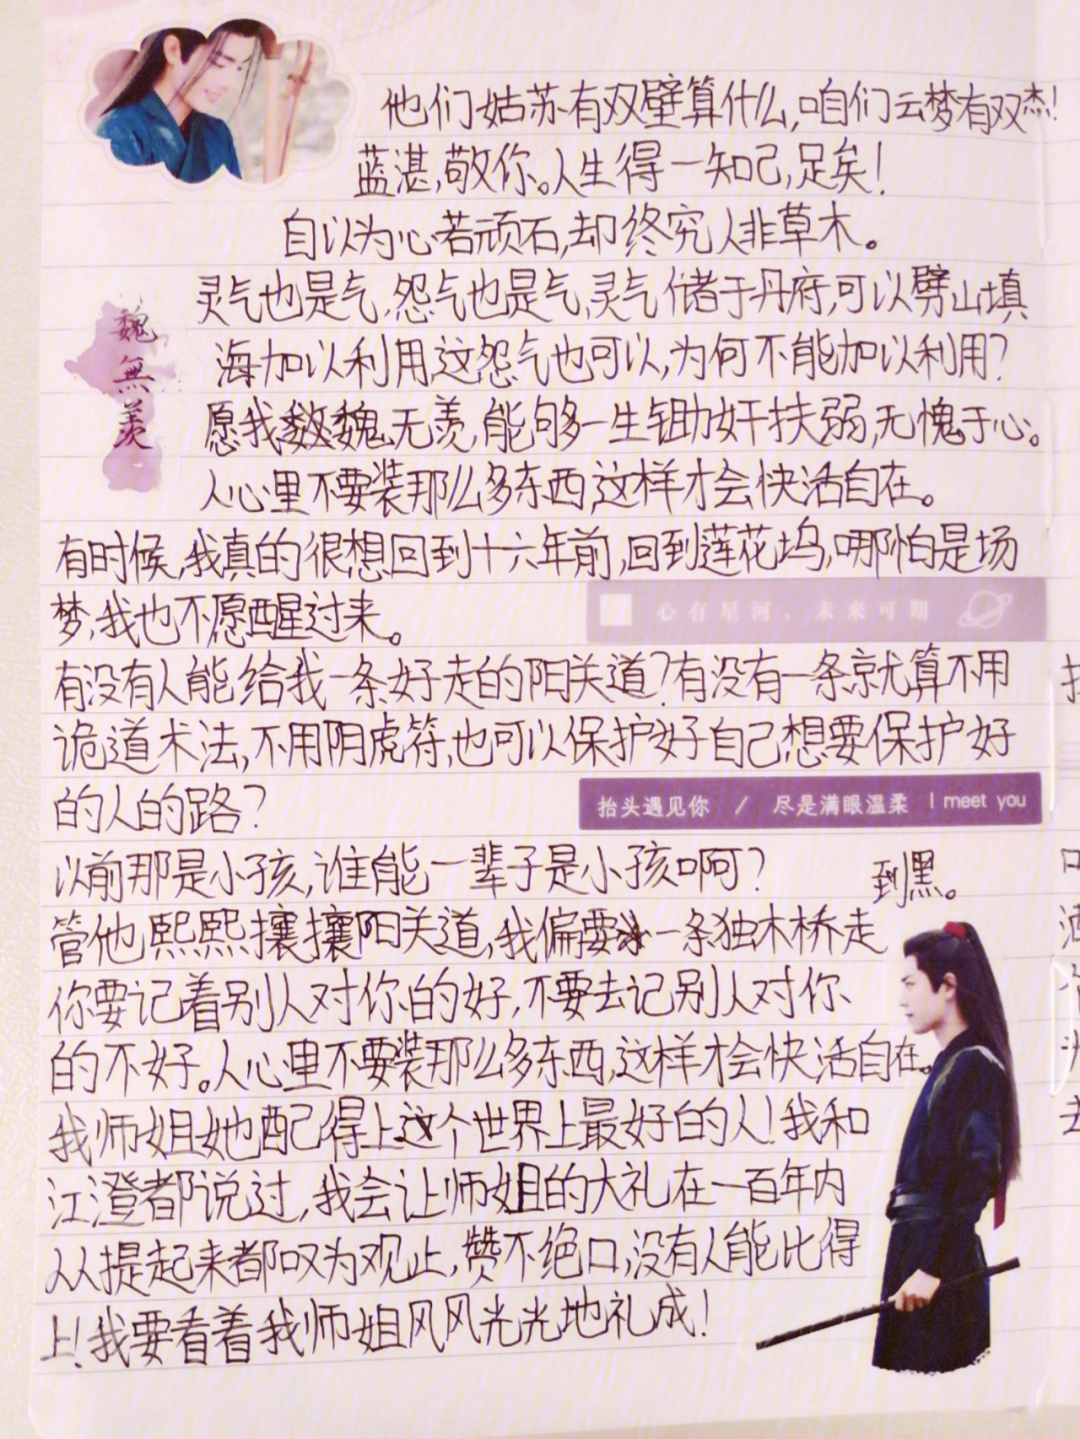 他们姑苏有双壁算什么,咱们云梦有双杰!
蓝湛,敬你。人生得一知己,足矣!
自以为心若顽石,却终究人非草木。
灵气也是气,怨气也是气,灵气储于丹府,可以劈山填
海加以利用这怨气也可以,为何不能加以利用?
愿我魏无羡,能够一生锄奸扶弱,无愧于心。
人心里不要装那么多东西,这样才会快活自在。
魏
無
羨
有时候,我真的很想回到十六年前,回到莲花坞,哪怕是场
梦,我也不愿醒过来。
心有星河,未来可期
有没有人能给我一条好走的阳关道?有没有一条就算不用
诡道术法,不用阴虎符,也可以保护好自己想要保护好
的人的路?
抬头遇见你 / 尽是满眼温柔 I meet you
以前那是小孩,谁能一辈子是小孩啊?
管他熙熙攘攘阳关道,我偏要一条独木桥走
到黑。
你要记着别人对你的好,不要去记别人对你
的不好。人心里不要装那么多东西,这样才会快活自在。
我师姐她配得上这个世界上最好的人!我和
江澄都说过,我会让师姐的大礼在一百年内
人人提起来都叹为观止,赞不绝口,没有人能比得
上!我要看着我师姐风风光光地礼成!